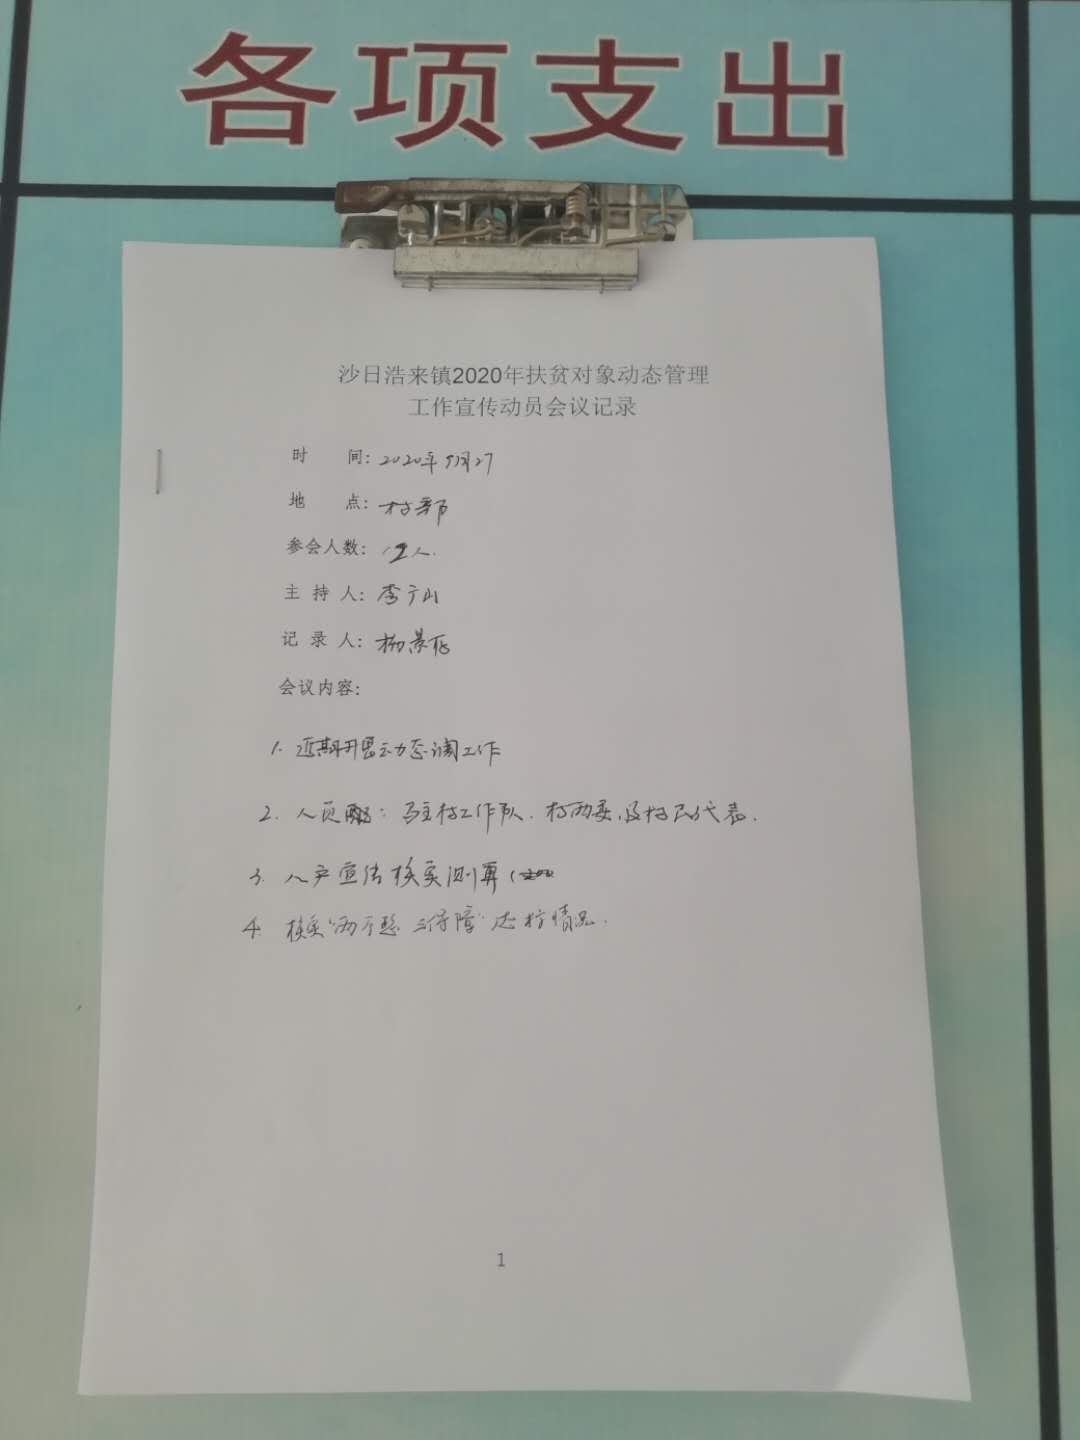 各项支出
沙日浩来镇2020年扶贫对象动态管理
工作宣传动员会议记录
时 间：2020年9月27
地 点：村部
参会人数：12人.
主 持 人：李广山
记 录 人：杨景
会议内容：
1. 近期开展动态调工作
2. 人员: 驻村工作队. 村两委,及村民代表.
3. 入户宣传核实测算
4. 核实"两不愁 三保障"达标情况.
1